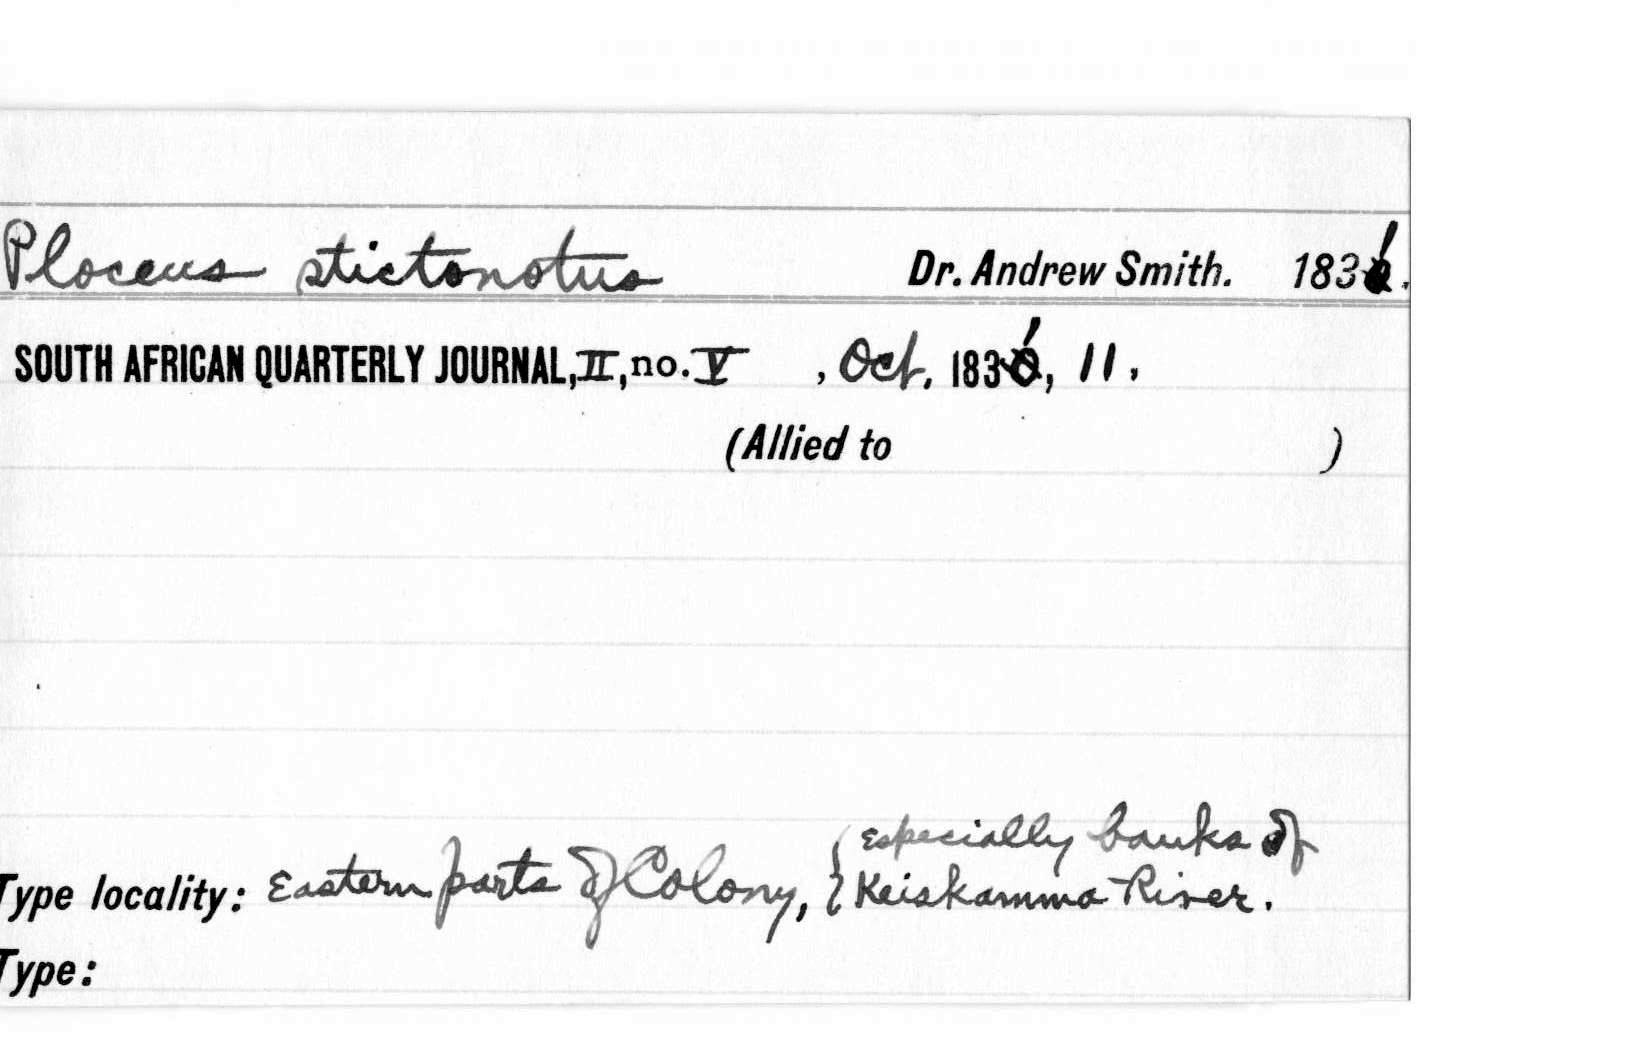 Ploceus stictonotus Dr. Andrew Smith. 1831.
SOUTH AFRICAN QUARTERLY JOURNAL, II, no. V , Oct. 1831, 11.
(Allied to )
especially banks of
Type locality: Eastern parts of Colony, { Keiskamma River.
Type: